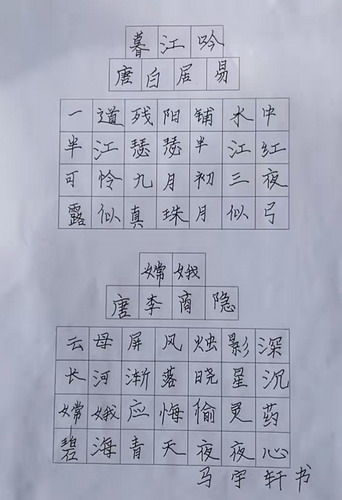 暮江吟
唐白居易
一道残阳铺水中
半江瑟瑟半江红
可怜九月初三夜
露似真珠月似弓
嫦娥
唐李商隐
云母屏风烛影深
长河渐落晓星沉
嫦娥应悔偷灵药
碧海青天夜夜心
马宇轩书